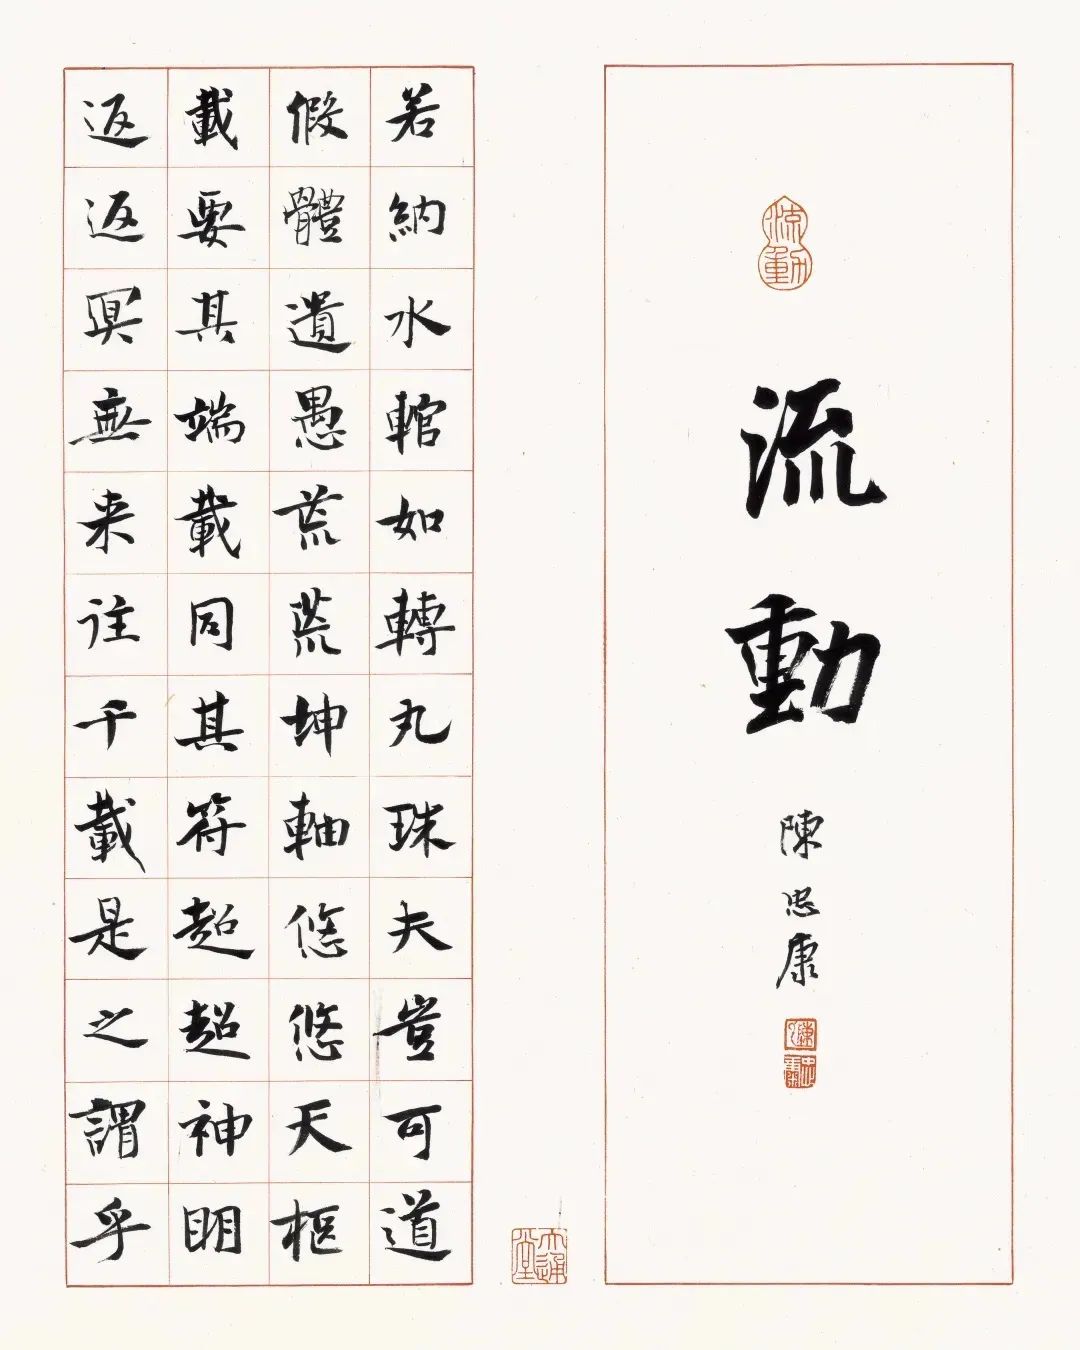 流動
流動
陳忠康
若納水輨如轉丸珠夫豈可道
假體遺愚荒荒坤軸悠悠天樞
載要其端載同其符超超神明
返返冥無来往千載是之謂乎